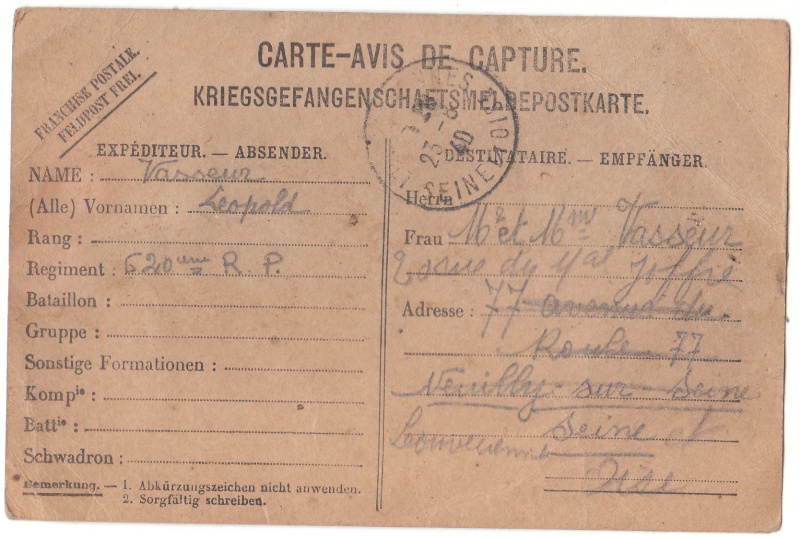 FRANCHISE POSTALE.
FELDPOST FREI.
CARTE-AVIS DE CAPTURE.
KRIEGSGEFANGENSCHAFTSMELDEPOSTKARTE.
EXPÉDITEUR. — ABSENDER.
NAME : Vasseur
(Alle) Vornamen : Leopold
Rang :
Regiment : 620eme R. P.
Bataillon :
Gruppe :
Sonstige Formationen :
Kompie :
Battie :
Schwadron :
Bemerkung. — 1. Abkürzungszeichen nicht anwenden.
2. Sorgfältig schreiben.
SEINE
23 - 8
40
DESTINATAIRE. — EMPFÄNGER.
Herrn
Frau Mr et Mme Vasseur
2 rue du Mal Joffre
Adresse : 77 avenue du
Roule 77
Neuilly sur Seine
Seine et
Louveciennes
Oise